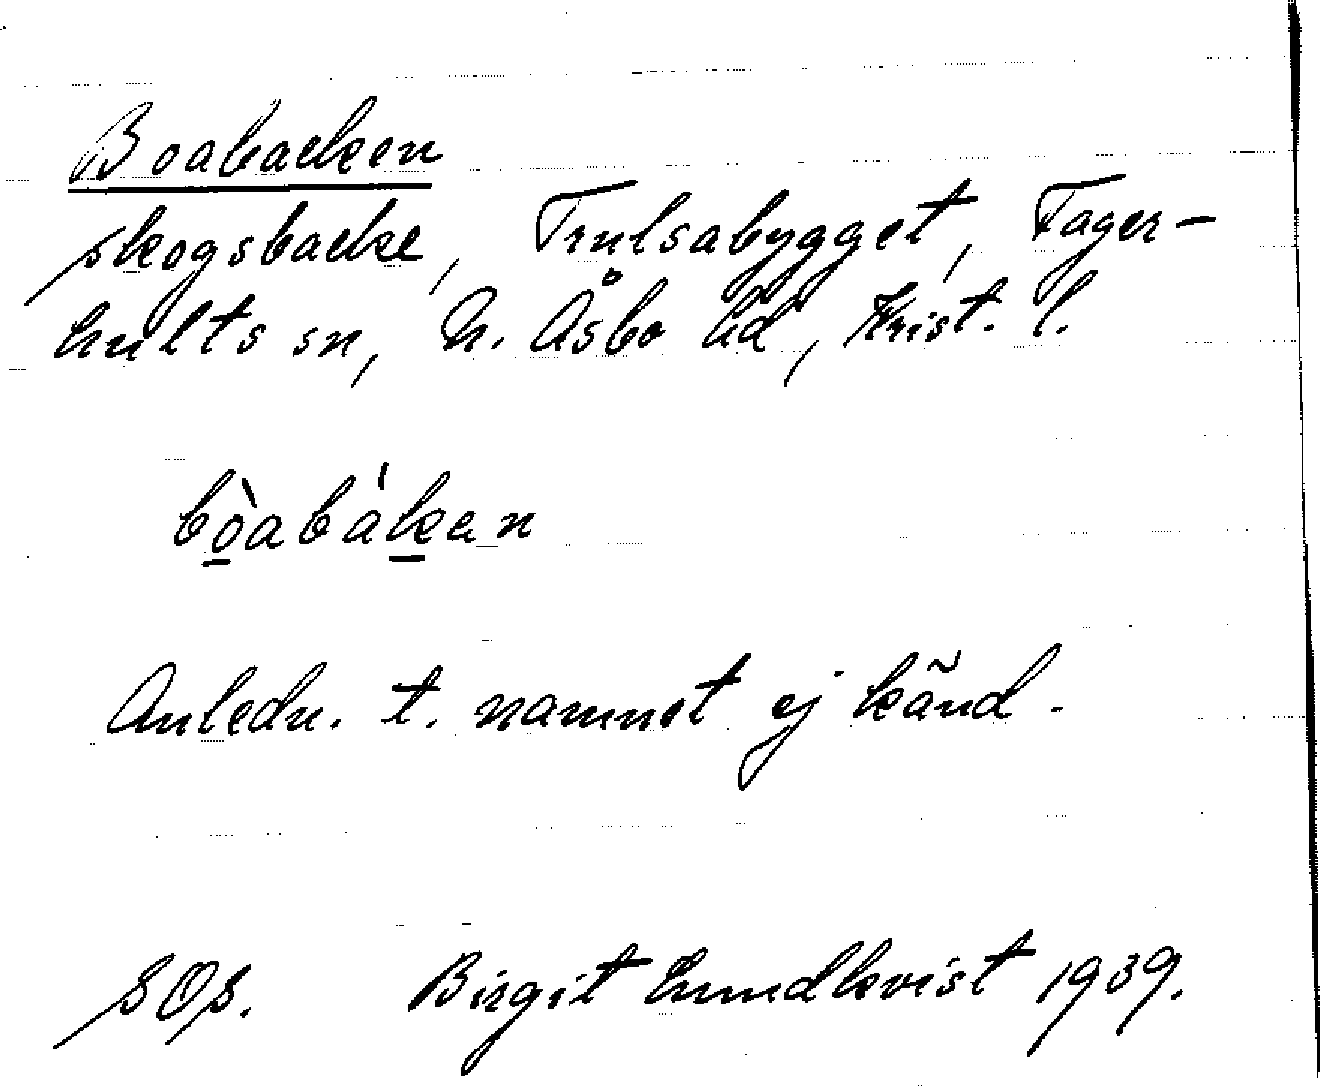 Boabacken
skogsbacke, Trulsabygget, Fager-
hults sn, N. Åsbo hd, Krist. l.
bò̱abáḵan
Anledn. t. namnet ej känd.
SOS. Birgit Lundkvist 1939.